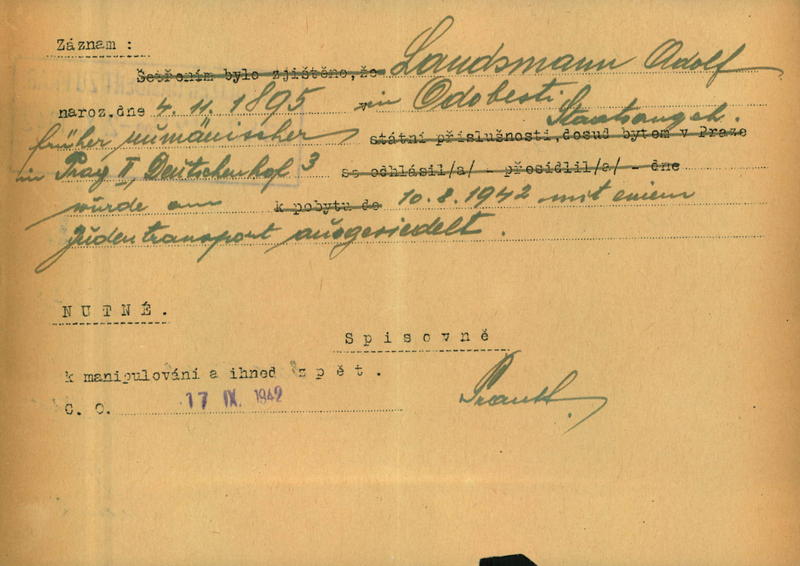 Záznam :
Šetřením bylo zjištěno, že Landsmann Adolf
naroz. dne 4. 11. 1895 in Odobesti
Staatsangeh.
früher rumänischer státní příslušnosti, dosud bytem v Praze
in Prag II, Deutschenhof 3 se odhlásil/a/ - přesídlil/a/ - dne
wurde am k pobytu do 10. 8. 1942 mit einem
Judentransport ausgesiedelt.
NUTNÉ.
Spisovně
k manipulování a ihned zpět.
C. O. 17 IX. 1942